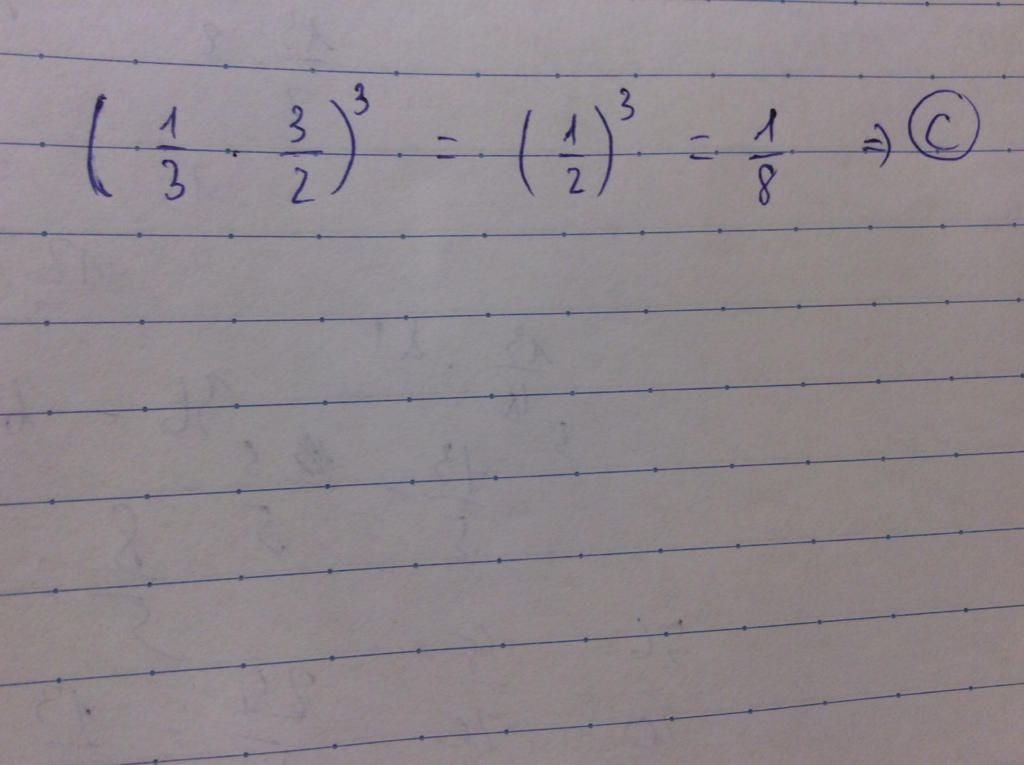 (1/3 · 3/2)³ = (1/2)³ = 1/8 ⇒ C